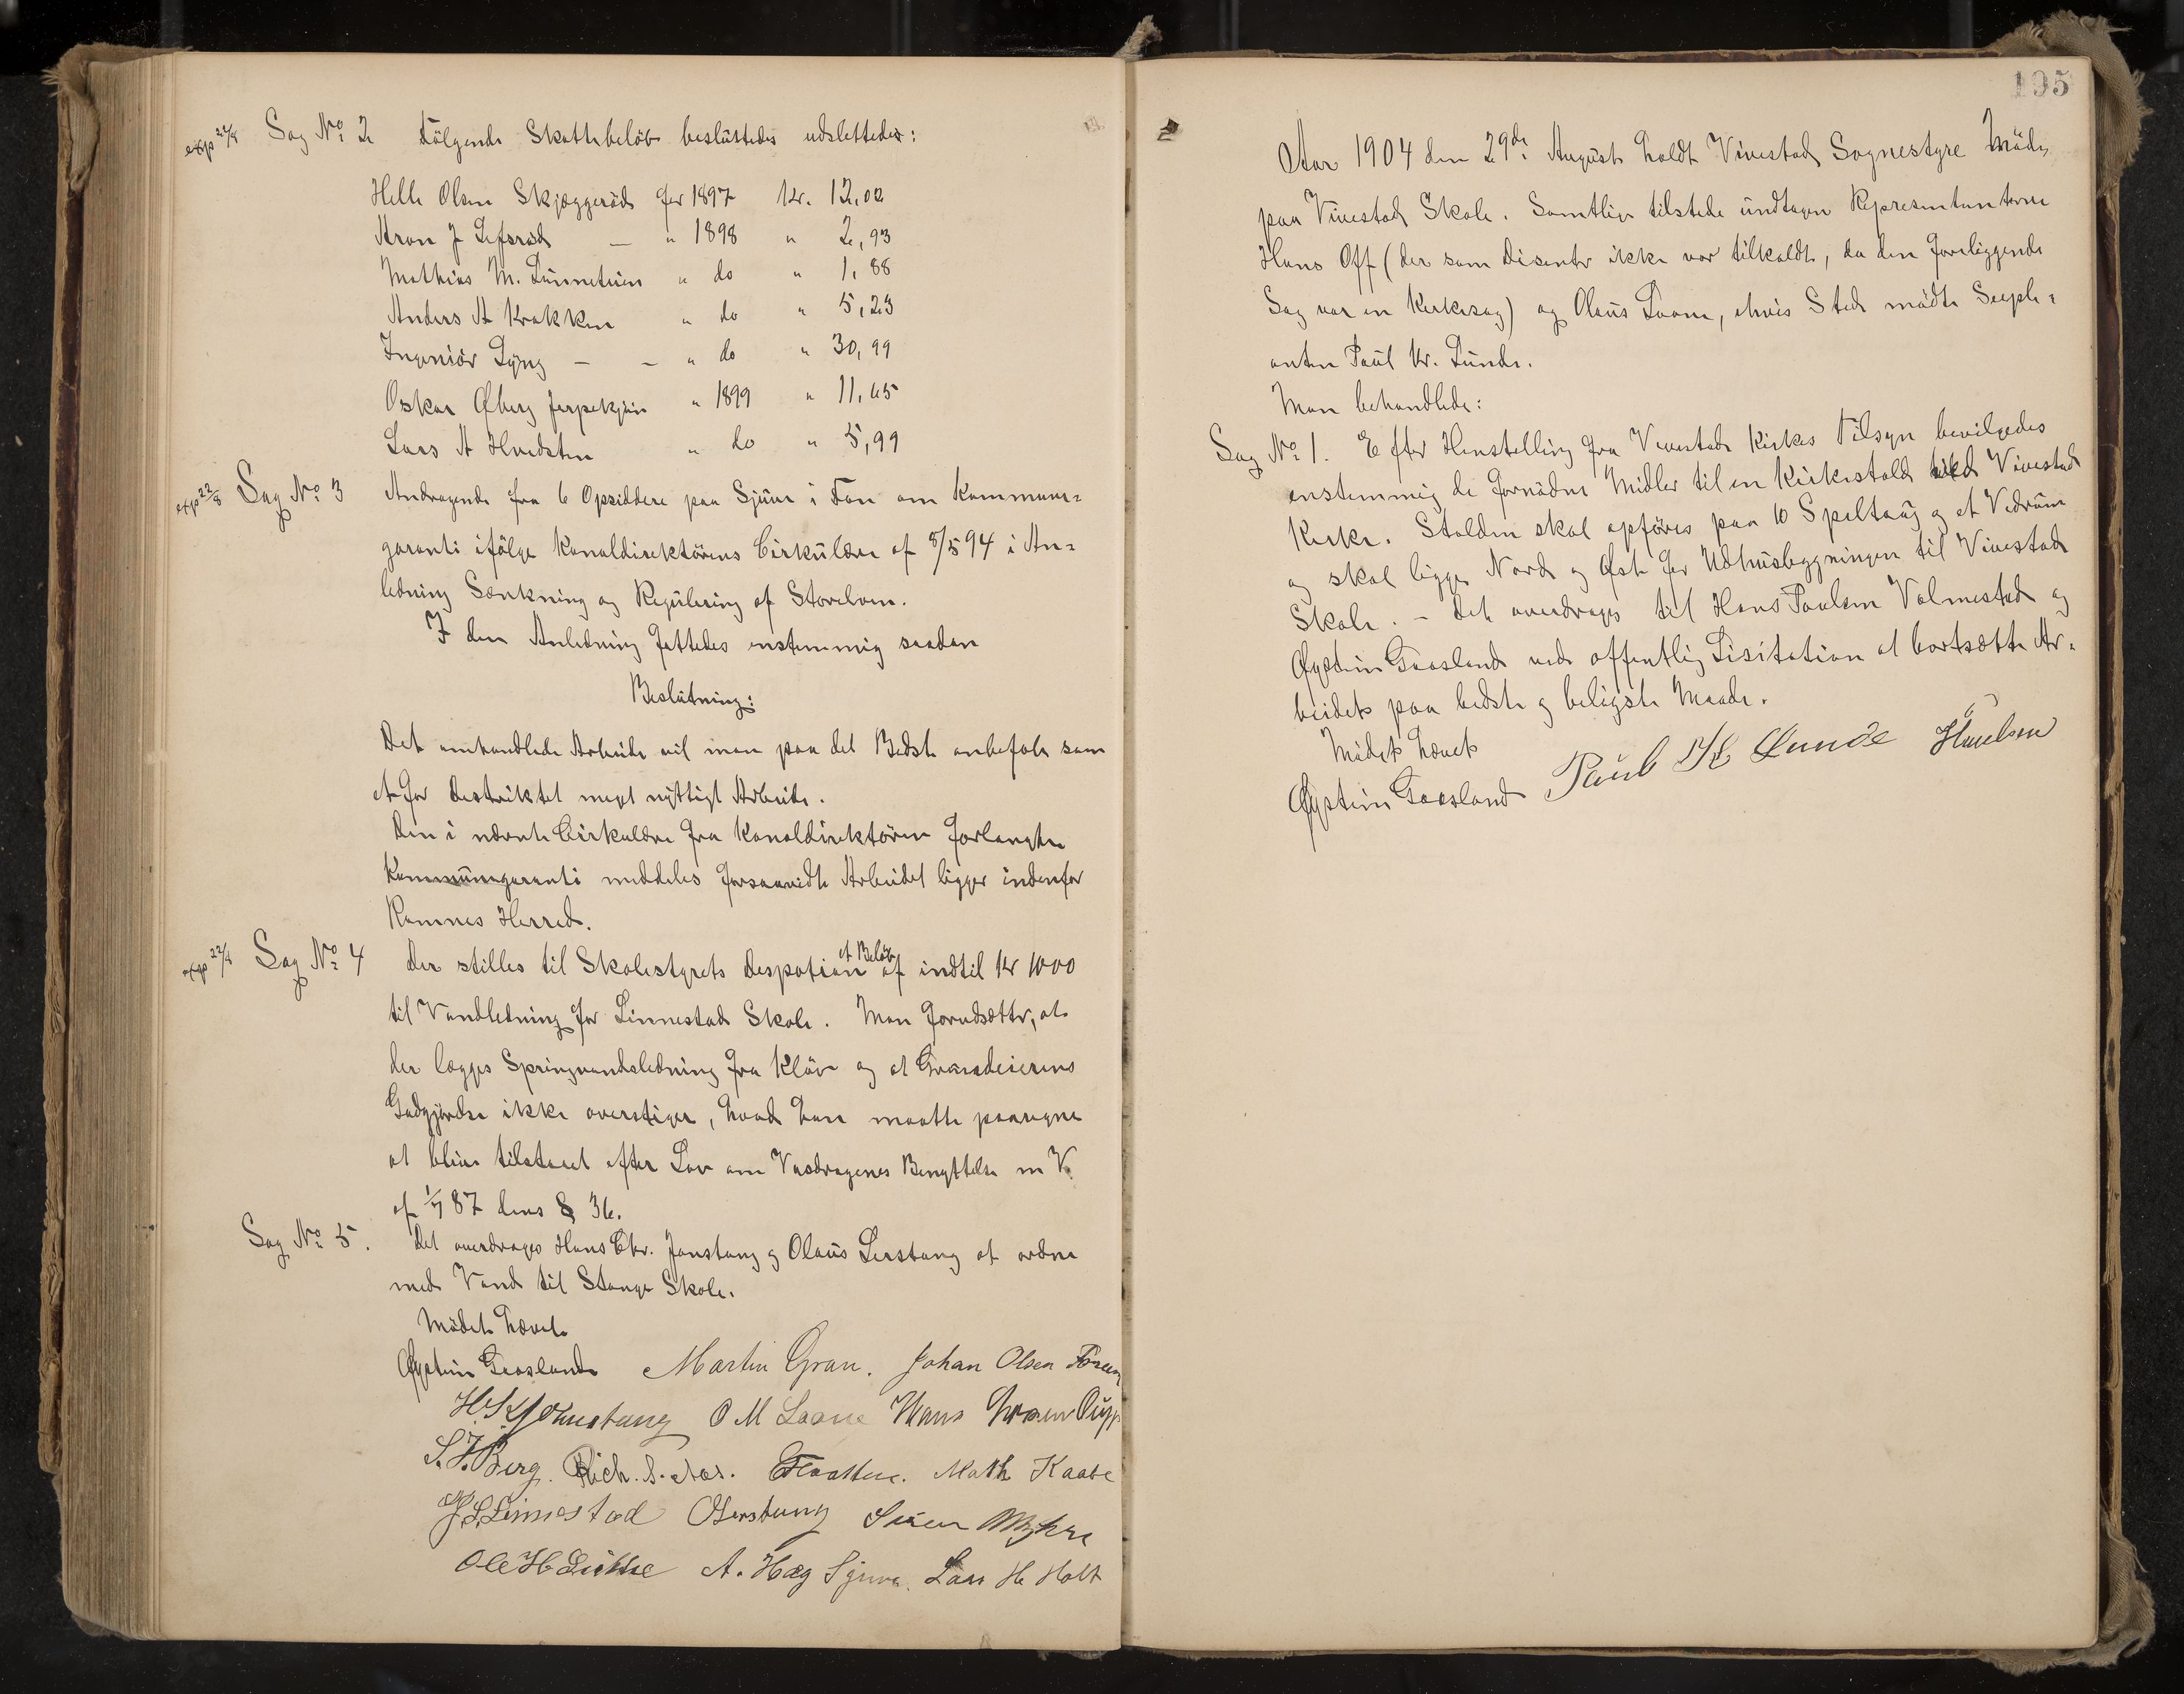 exp 22/8 Sag No 2 Følgende Skattebeløb besluttedes udslettedes:
Helle Olsen Skjæggerød for 1897 Kr. 12,02
Aron J Lefsrød — " 1898 " 2,93
Mathias M. " do " 1,88
Anders A Krakken " do " 5,23
Ingeniør Lyng — — " do " 30,99
Oskar Øberg " 1899 " 11,65
Lars A Hvidsten " do " 5,99
exp 22/8 Sag No 3 Andragende fra 6 Opsiddere paa Sjuve i Fon om Kommune-
garanti ifølge Kanaldirektørens Cirkulære af 8/5 94 i An-
ledning Sænkning og Regulering af Storelven.
I den Anledning fattedes enstemmig saadan
Beslutning:
Det omhandlede Arbeide vil man paa det Bedste anbefale som
et for Destriktet meget nyttigt Arbeide.
Den i nævnte Cirkulære fra Kanaldirektøren forlangte
Kommunegaranti meddeles forsaavidt Arbeidet ligger indenfor
Ramnes Herred.
exp 22/8 Sag No 4 Der stilles til Skolestyrets Despotion et Beløb af indtil Kr 1000
til Vandledning for Linnestad Skole. Man forudsætter, at
der lægges Springvandsledning fra Kløv og at Grundeierens
Godtgjørelse ikke overstiger, hvad han maatte paaregne
at blive tilstaaet efter Lov om Vasdragenes Benyttelse m V.
af 1/7 87 dens § 36.
Sag No 5. Det overdroges Hans Chr. Jonstang og Olaus Lerstang at ordne
med Vand til Stange Skole.
Mødet hævet
Øystein Graosland Martin Gran. Johan Olsen
H. Kr Johnstang O M Laane Hans
S. J. Berg. Rich. S. Aas. Flaatten. Math Kaabe
J. L. Linnestad O Lerstang Søren Myhre
Ole H Liverud A. Hæg Sjuve. Lars H Holt
195
Aar 1904 den 29de August holdt Vivestad Sognestyre Møde
paa Vivestad Skole. Samtlige tilstede undtagen Representanterne
Hans Off (der som Disenter ikke var tilkaldt, da den foreliggende
Sag var en Kirkesag) og Olaus Laane, i hvis Sted mødte Supli-
anten Paul Kr. Lunde.
Man behandlede:
Sag No 1. Efter Henstilling fra Vivestad Kirkes Tilsyn bevilgedes
enstemmig de fornødne Midler til en Kirkestald ved Vivestad
Kirke. Stalden skal opføres paa 10 Speltaug og et Vedrum
og skal ligge Nord og Øst for Udhusbygningen til Vivestad
Skole. — Det overdroges til Hans Paulsen Valmestad og
Øystein Graosland ved offentlig Lisitation at bortsætte Ar-
beidet paa bedste og beligste Maade.
Mødet hævet
Øystein Graosland Paul Kr Lunde